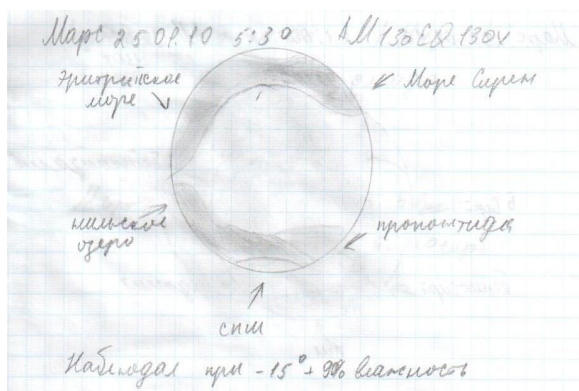 Марс 25 01.10 5:30
эритрийское
море
Море Сирен
нильское
озеро
пропонтида
спш
Наблюдал при -15° + влажность